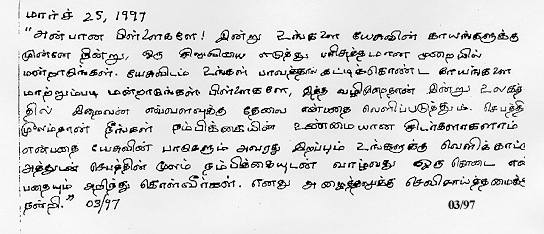 மார்ச் 25, 1997
"அன்பான பிள்ளைகளே! இன்று உங்களை யேசுவின் காயங்களுக்கு
முன்னே நின்று, ஒரு சிலுவையை எடுத்து பரிசுத்தமான முறையில்
மன்றாடுங்கள். யேசுவிடம் உங்கள் பாவத்தால் கட்டிக்கொண்ட காயங்களை
மாற்றும்படி மன்றாடுங்கள் பிள்ளைகளே, இந்த வழியில்தான் இன்று உலகத்
தில் இறைவன் எவ்வளவுக்கு தேவை என்பதை வெளிப்படுத்தும். செபத்தி
மூலம்தான் நீங்கள் நம்பிக்கையின் உண்மையான சீடர்களாகளாம்
என்பதை யேசுவின் பாடுகளும் அவரது இறப்பும் உங்களுக்கு வெளிக்காட்ட
அத்துடன் செபத்தின் மூலம் நம்பிக்கையுடன் வாழ்வது ஒரு கொடை என்
பதையும் அறிந்து கொள்வீர்கள். எனது அழைத்தலுக்கு செவிசாய்த்தமைக்கு
நன்றி." 03/97
03/97